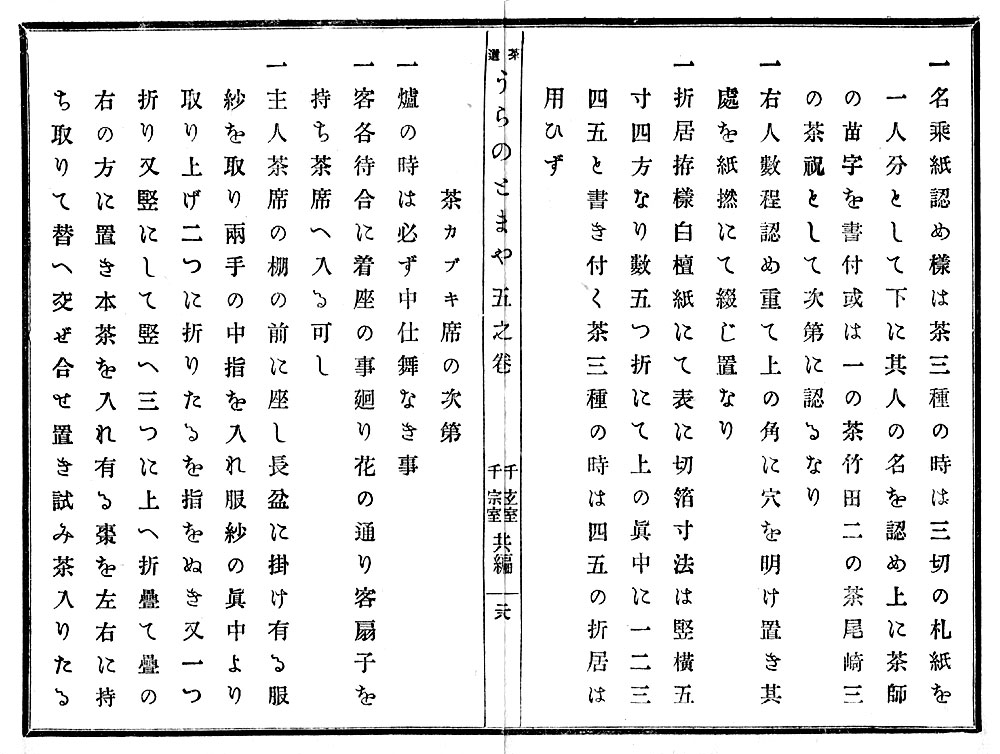 一名乘紙認め樣は茶三種の時は三切の札紙を
一人分として下に其人の名を認め上に茶師
の苗字を書付或は一の茶竹田二の茶尾崎三
の茶祝として次第に認るなり
一右人數程認め重て上の角に穴を明け置き其
處を紙撚にて綴じ置なり
一折居拵樣白檀紙にて表に切箔寸法は竪橫五
寸四方なり數五つ折にて上の眞中に一二三
四五と書き付く茶三種の時は四五の折居は
用ひず
茶道
うらのとまや 五之卷
千玄室
千宗室
共編
茶カブキ席の次第
一爐の時は必ず中仕舞なき事
一客各待合に着座の事廻り花の通り客扇子を
持ち茶席へ入る可し
一主人茶席の棚の前に座し長盆に掛け有る服
紗を取り兩手の中指を入れ服紗の眞中より
取り上げ二つに折りたるを指をぬき又一つ
折り又竪にして竪へ三つに上へ折疊て疊の
右の方に置き本茶を入れ有る棗を左右に持
ち取りて替へ交ぜ合せ置き試み茶入りたる